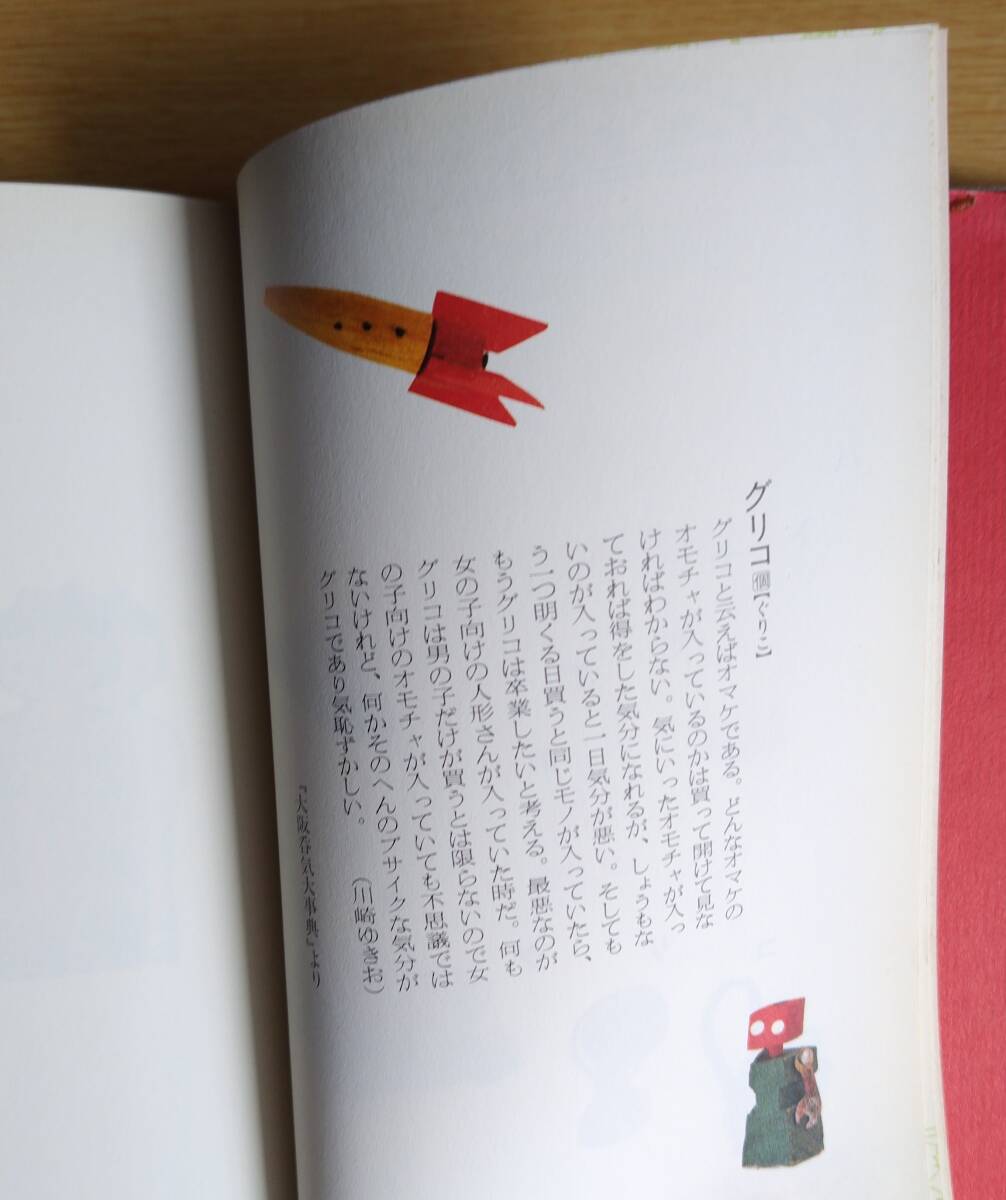 グリコ 個【ぐりこ】
グリコと云えばオマケである。どんなオマケの
オモチャが入っているのかは買って開けて見な
ければわからない。気にいったオモチャが入っ
ておれば得をした気分になれるが、しょうもな
いのが入っていると一日気分が悪い。そしても
う一つ明くる日買うと同じモノが入っていたら、
もうグリコは卒業したいと考える。最悪なのが
女の子向けの人形さんが入っていた時だ。何も
グリコは男の子だけが買うとは限らないので女
の子向けのオモチャが入っていても不思議では
ないけれど、何かそのへんのブサイクな気分が
グリコであり気恥ずかしい。 (川崎ゆきお)
『大阪呑気大事典』より